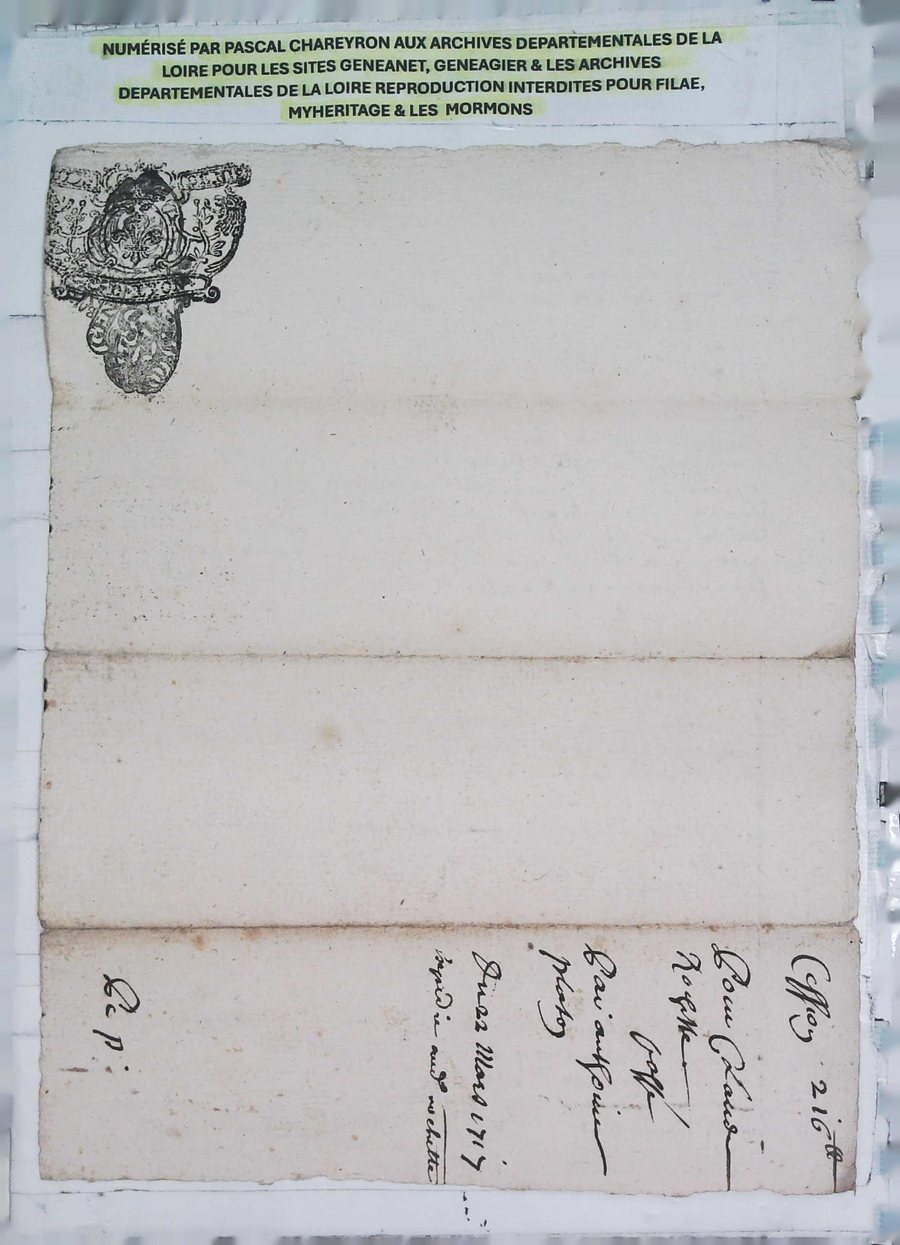 NUMÉRISÉ PAR PASCAL CHAREYRON AUX ARCHIVES DEPARTEMENTALES DE LA
LOIRE POUR LES SITES GENEANET, GENEAGIER & LES ARCHIVES
DEPARTEMENTALES DE LA LOIRE REPRODUCTION INTERDITES POUR FILAE,
MYHERITAGE & LES MORMONS
Ceſſion 216
Pour Claude
Par anthoine
Du 22 Mars 1717
expedie audt rochette